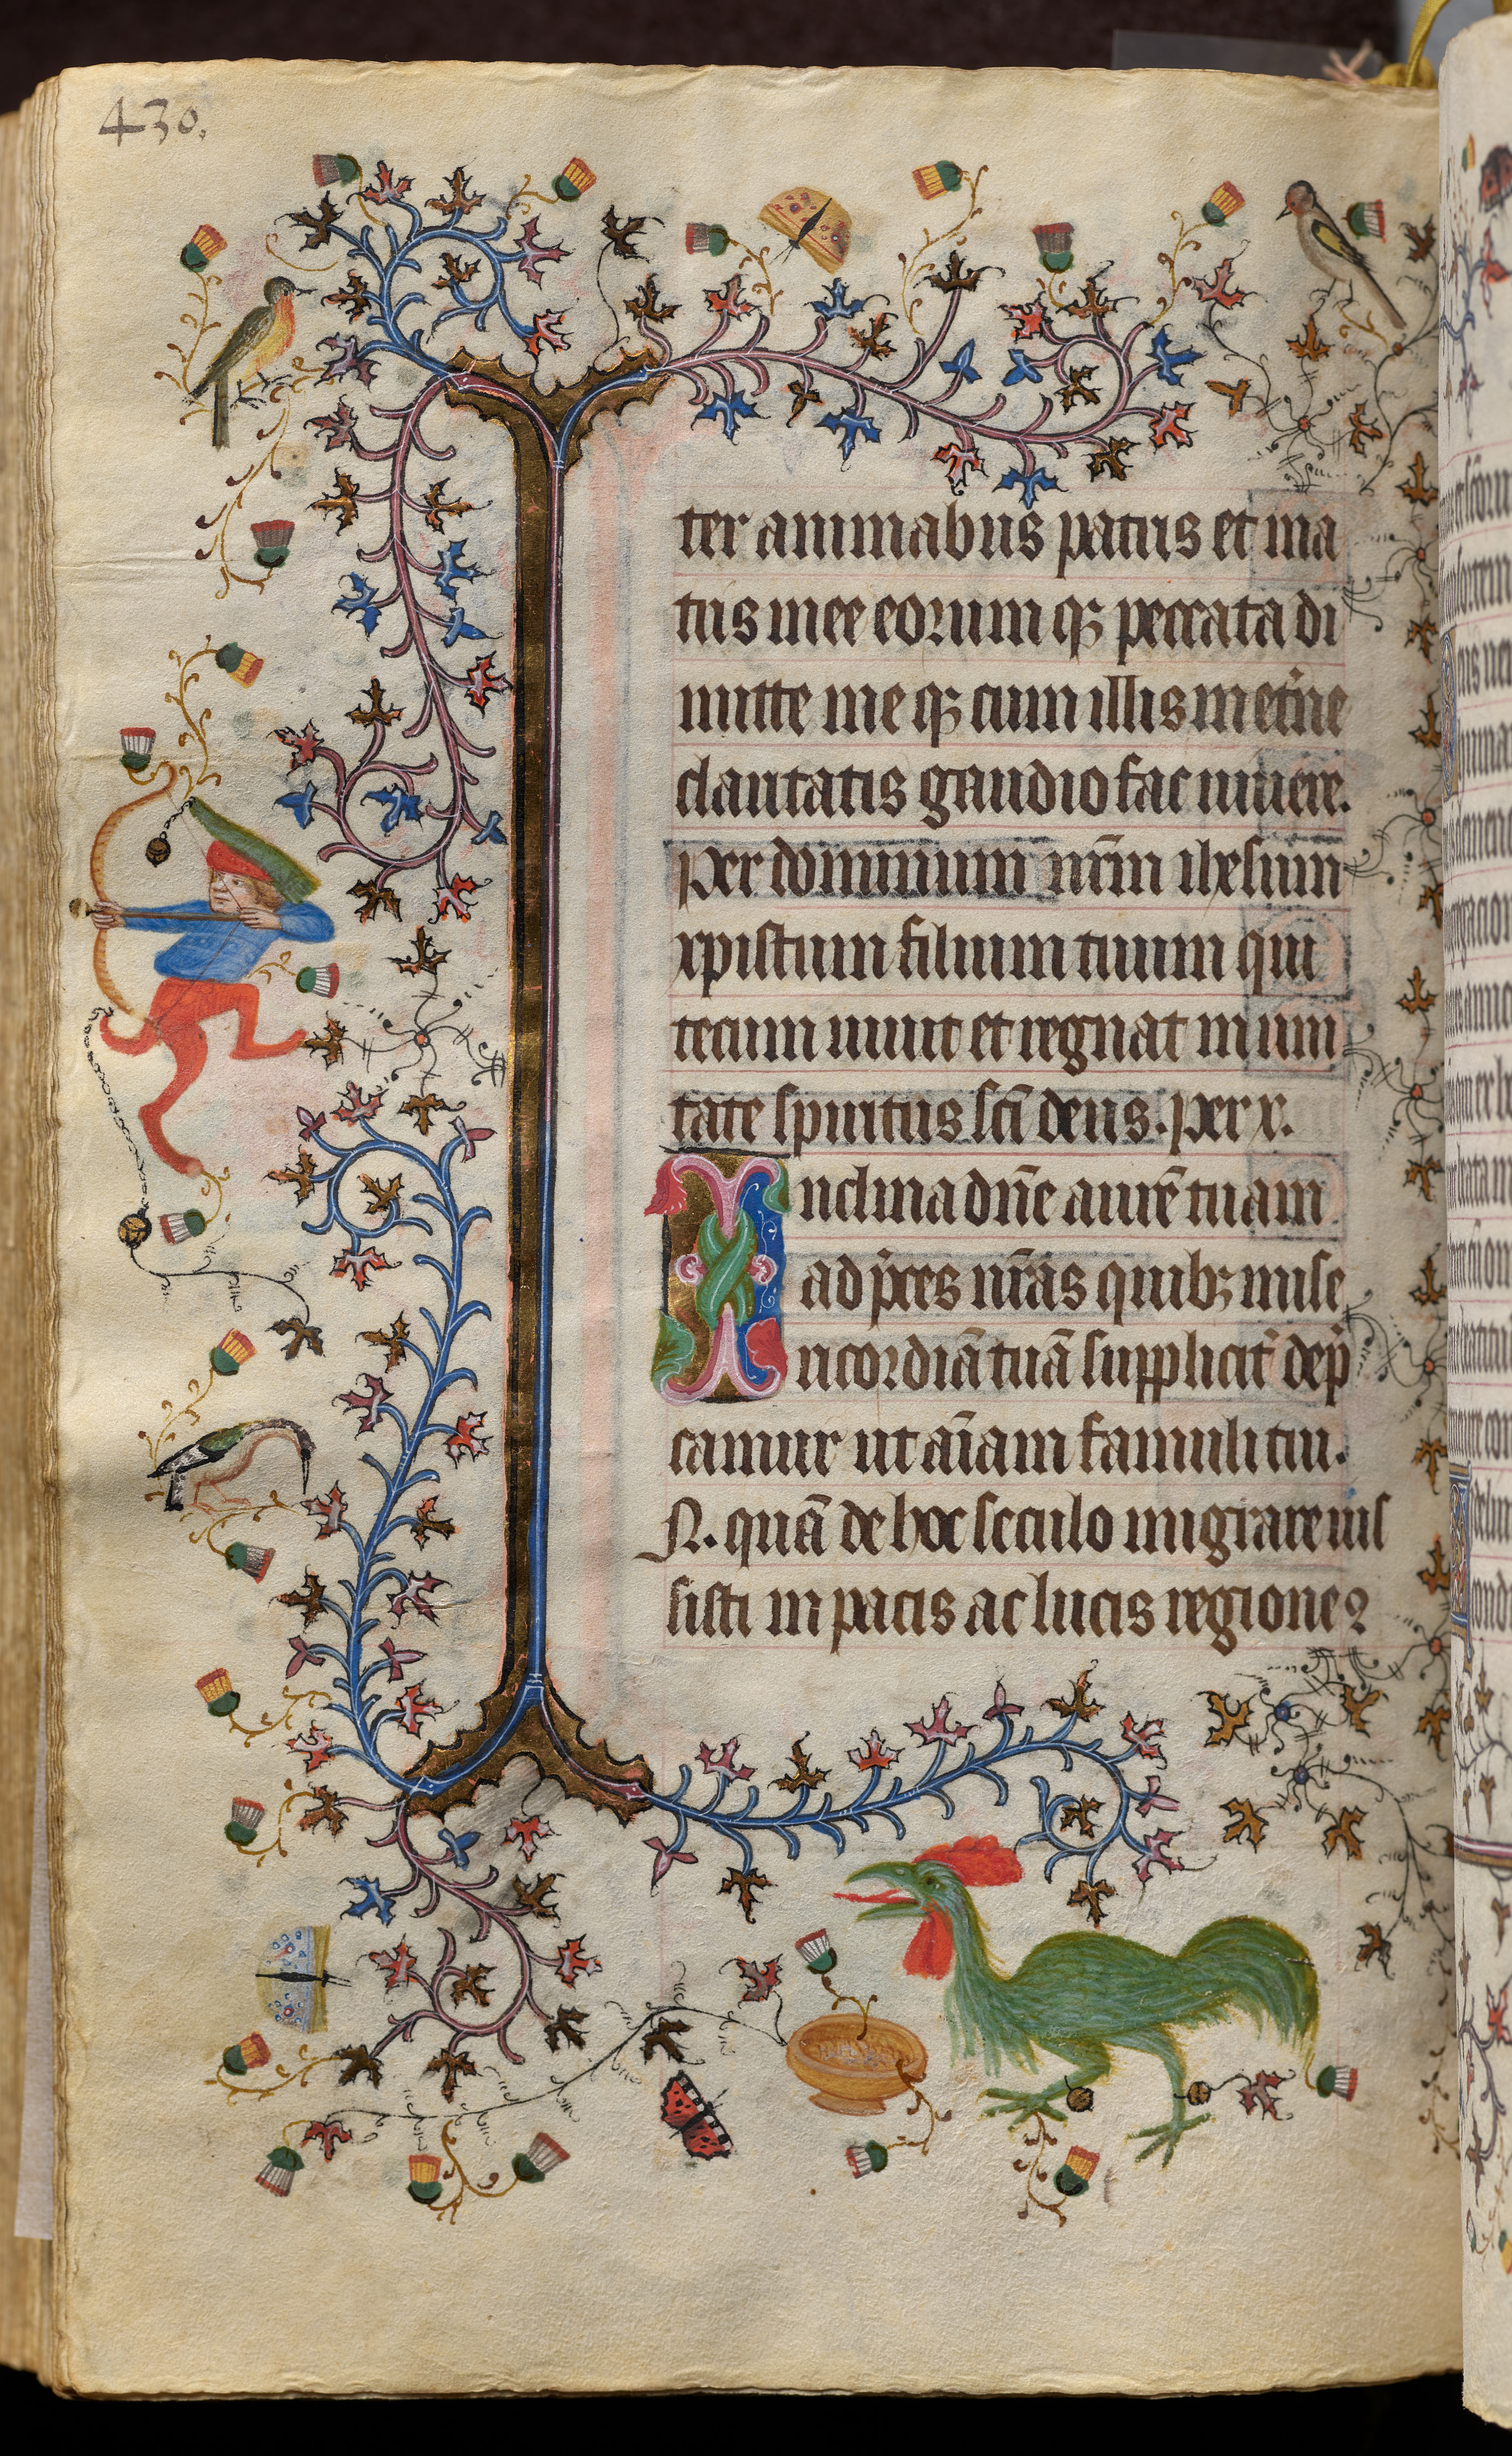 430.
ter animabus patris et ma
tris mee eorum qꝫ peccata di
mitte me qꝫ cum illis in et̾ne
claritatis gaudio fac viuere.
Per dominum nr̄m ihesum
xpistum filium tuum qui
tecum uiuit et regnat in vni
tate spiritus sc̄i deus. per x.
Inclina dn̄e aurē tuam
ad p̄ces nr̄as quibꝫ mise
ricordiā tuā supplicit̾ dep̄
camur ut aīam famuli tui.
N. quā de hoc seculo migrare ius
sisti in pacis ac lucis regione